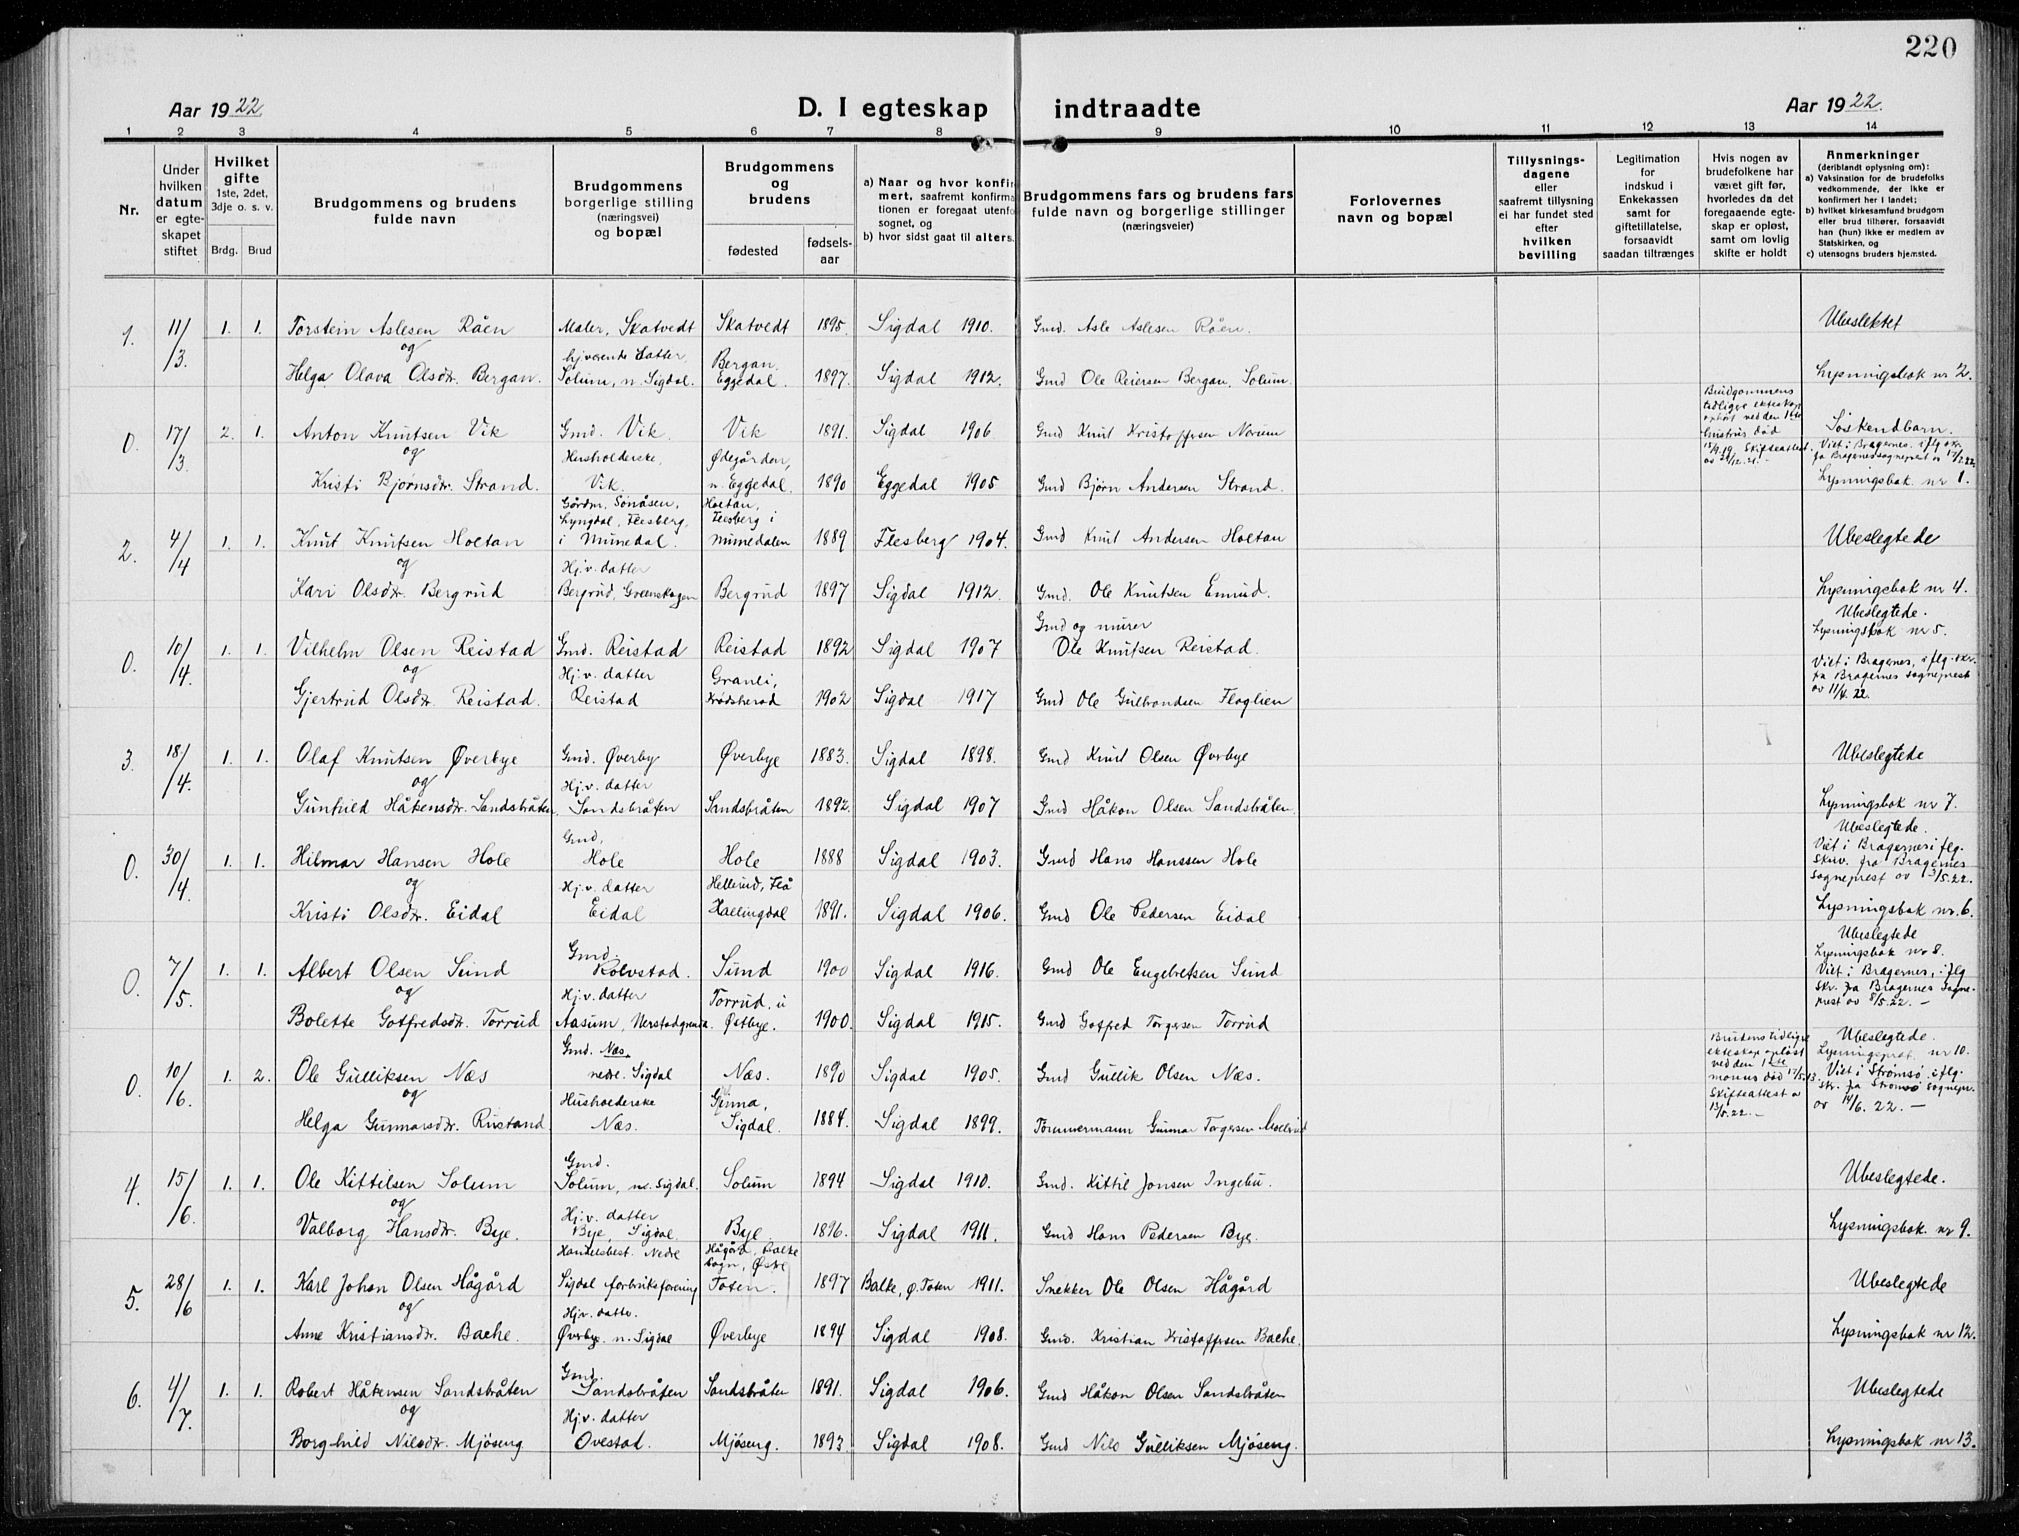 220
Aar 1922
D. I egteskap indtraadte
Aar 1922.
1 2 3 4 5 6 7 8 9 10 11 12 13 14
Nr.
Under hvilken datum er egteskapet stiftet
Hvilket gifte
1ste, 2det, 3dje o. s. v.
Brdg. Brud
Brudgommens og brudens fulde navn
Brudgommens borgerlige stilling (næringsvei) og bopæl
Brudgommens og brudens
fødested
fødselsaar
a) Naar og hvor konfirmert, saafremt konfirmationen er foregaat utenfor sognet, og
b) hvor sidst gaat til alters.
Brudgommens fars og brudens fars fulde navn og borgerlige stillinger (næringsveier)
Forlovernes navn og bopæl
Tillysningsdagene eller saafremt tillysning ei har fundet sted efter hvilken bevilling
Legitimation for indskud i Enkekassen samt for giftetillatelse, forsaavidt saadan tiltrænges
Hvis nogen av brudefolkene har været gift før, hvorledes da det foregaaende egteskap er opløst, samt om lovlig skifte er holdt
Anmerkninger (deriblandt oplysning om):
a) Vaksination for de brudefolks vedkommende, der ikke er konfirmert her i landet;
b) hvilket kirkesamfund brudgom eller brud tilhører, forsaavidt han (hun) ikke er medlem av Statskirken, og
c) utensogns bruders hjemsted.
1. 11/3 1. 1. Torstein Aslesen Råen Maler, Skatvedt Skatvedt 1895. Sigdal 1910. Gmd. Asle Aslesen Råen. Ubeslektet
og
Helga Olava Olsdtr. Bergan. hjverende datter, Solum, n. Sigdal. Bergan. Eggedal. 1897. Sigdal 1912. Gmd Ole Reiersen Bergan, Solum. Lysningsbok nr 2.
0. 17/3. 2. 1. Anton Knutsen Vik Gmd. Vik. Vik 1891. Sigdal 1906. Gmd Knut Kristoffersen Norum Brudgommens tidligere ekteskap opløst ved den 1ste hustrus død 15/9.19. Skifteattest av 24/12.21. Søskendbarn.
og
Viet i Bragernes, iflg. skr. fra Bragernes sogneprest av 17/3.22
Kristi Bjørnsdtr. Strand. Husholderske, Vik. Ødegården, n. Eggedal. 1890 Eggedal 1905 Gmd Bjørn Andersen Strand. Lysningsbok nr 1.
2. 4/4 1. 1. Knut Knutsen Holtan Gårdm. Sønåsen, Lyngdal, Flesberg, i Numedal. Holtan, Flesberg i Numedalen 1889 Flesberg 1904. Gmd Knut Andersen Holtan Ubeslegtede
og
Kari Olsdtr. Bergrud Hj.v. datter Bergrud, Grønskogen Bergrud 1897 Sigdal 1912. Gmd. Ole Knutsen Enrud. Lysningsbok nr 4.
0. 10/4. 1. 1. Vilhelm Olsen Reistad Gmd. Reistad Reistad 1892 Sigdal 1907 Gmd og murer Ole Knutsen Reistad. Ubeslegtede. Lysningsbok nr 5.
og
Gjertrud Olsdtr. Reistad. Hj.v. datter Reistad Granli, Krødsherad 1902 Sigdal 1917 Gmd Ole Gulbrandsen Flaglien Viet i Bragernes, iflg. skr. fra Bragernes sogneprest av 11/4.22.
3. 18/4. 1. 1. Olaf Knutsen Øverbye Gmd. Øverby Øverbye 1883. Sigdal 1898. Gmd Knut Olsen Øverbye Ubeslegtede
og
Gunhild Håkensdtr. Sandsbråten Hj.v. datter Sandsbråten Sandsbråten 1892. Sigdal 1907 Gmd Håkon Olsen Sandsbråten. Lysningsbok nr 7.
0. 30/4 1. 1. Hilmar Hansen Hole Gmd, Hole Hole 1888 Sigdal 1903. Gmd Hans Hanssen Hole Ubeslegtede. Viet i Bragernes iflg. skriv. fra Bragernes sogneprest av 3/5.22.
og
Kristi Olsdtr. Eidal Hj.v. datter Eidal Hellerud, Flå Hallingdal 1891. Sigdal 1906. Gmd Ole Pedersen Eidal Lysningsbok nr. 6.
0. 7/5. 1. 1. Albert Olsen Sund Gmd. Kolvstad. Sund 1900 Sigdal 1916. Gmd Ole Engebretsen Sund Ubeslegtede Lysningsbok nr 8.
og
Bolette Gotfredsdtr. Torrud Hj.v. datter Aasum, Nerstadgrenda. Torrud, u Østbye. 1900. Sigdal 1915. Gmd Gotfred Torgersen Torrud Viet i Bragernes, iflg skr. fra Bragernes sogneprest av 8/5.22. –
0. 10/6. 1. 2. Ole Gulliksen Næs Gmd. Næs. nedre. Sigdal Næs. 1890 Sigdal 1905. Gmd Gullik Olsen Næs. Brudens tidligere ekteskap opløst ved den 1ste manns død 17/5.13. Skifteattest av 13/5.22. – Ubeslegtede. nr 10.
og
Helga Gunnarsdtr. Rustand Husholderske Næs. Sigdal. 1884. Sigdal 1899. Tømmermann Gunnar Torgersen Viet i Strømsø. iflg. skr. fra Strømsø sognepr. av 14/6. 22. –
4. 15/6. 1. 1. Ole Kittilsen Solum Gmd. Solum, ne. Sigdal. Solum 1894 Sigdal 1910. Gmd. Kittil Jonsen Ingebu. Ubeslegtede.
og
Valborg Hansdtr. Bye. Hj.v. datter Bye, Sigdal. Bye 1896. Sigdal 1911. Gmd Hans Pedersen Bye. Lysningsbok. nr 9.
5. 28/6 1. 1. Karl Johan Olsen Hågård Handelsbest. Nedre Sigdal forbruksforening Hågård, Balke sogn, Østre Toten. 1897 Balke, Ø. Toten 1911. Snekker Ole Olsen Hågård Ubeslegtede
og
Anne Kristiansdtr. Bache. Hjv. datte. Øverbye n. Sigdal Øverbye 1894 Sigdal 1908. Gmd. Kristian Kristoffersen Bache. Lysningsbok nr 12.
6. 4/7. 1. 1. Robert Håkensen Sandsbråten Gmd. Sandsbråten Sandsbråten 1891. Sigdal 1906. Gmd Håkon Olsen Sandsbråten Ubeslegtede
og
Borghild Nilsdtr. Mjøseng Hj.v. datter Ovestad. Mjøseng. 1893 Sigdal 1908. Gmd Nils Gulliksen Mjøseng. Lysningsbok nr 13.